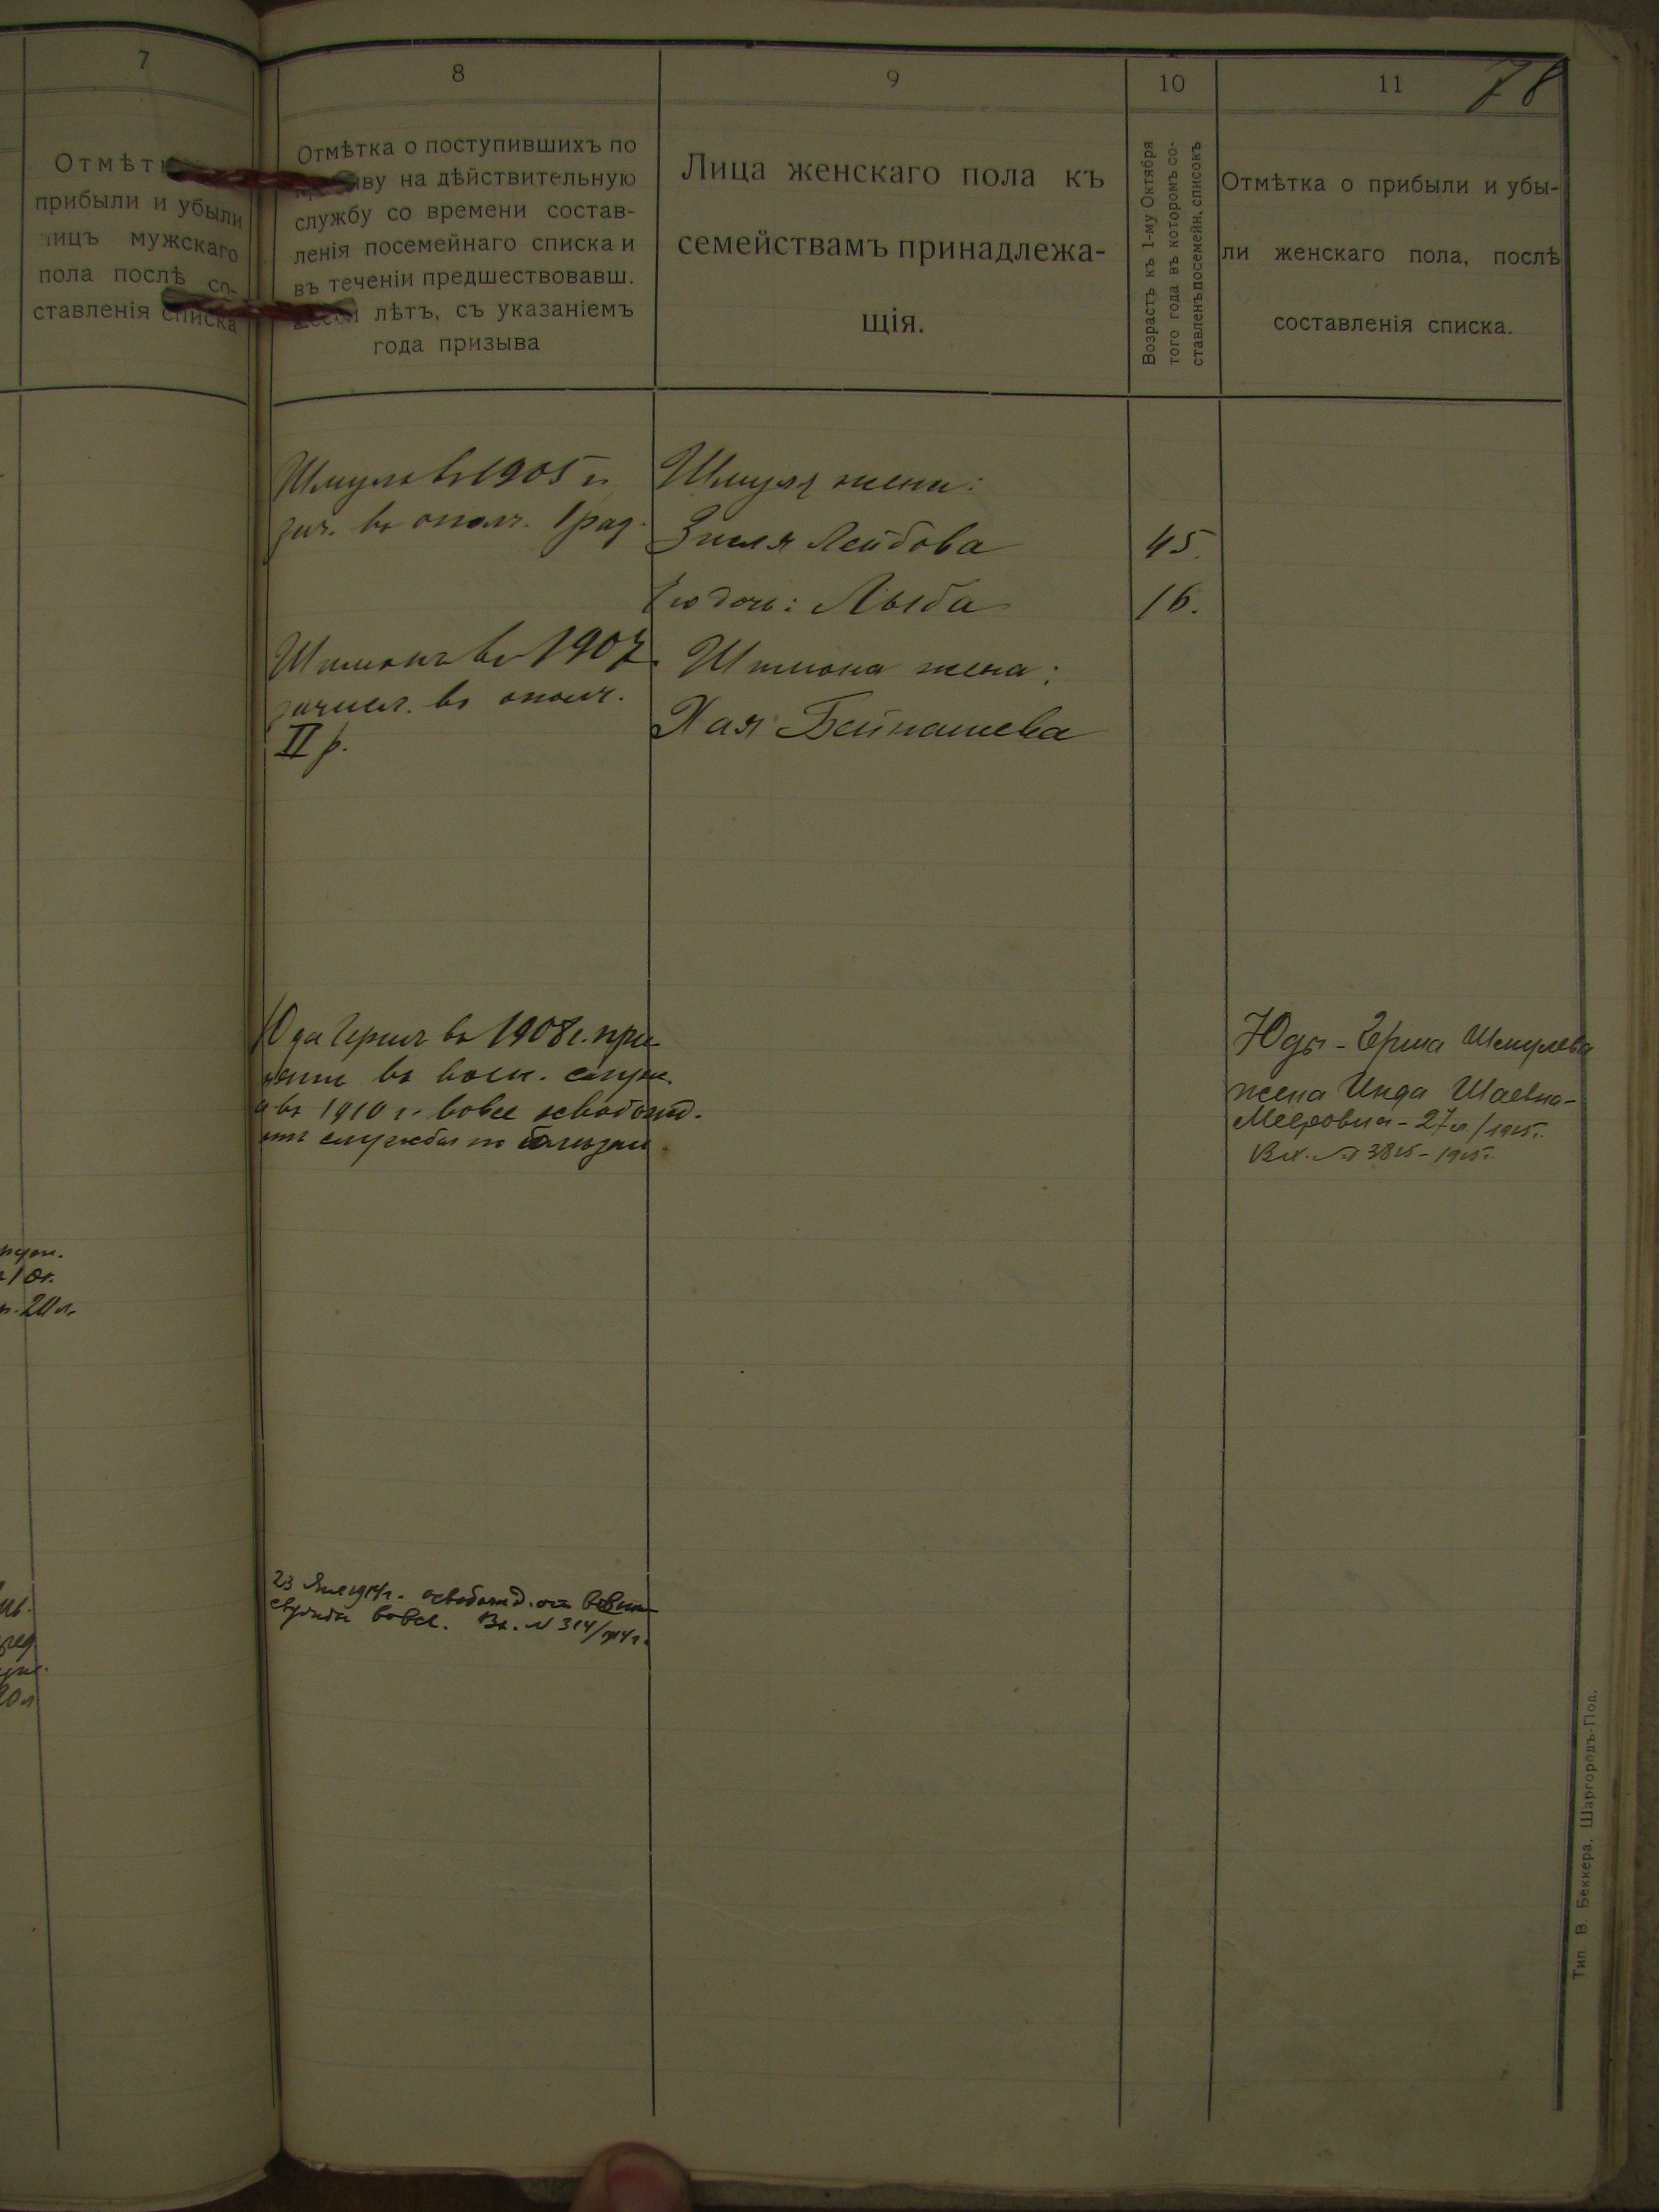 7
Отмѣт
прибыли и убыли
лицъ мужскаго
пола послѣ со-
ставленія списка
8
Отмѣтка о поступившихъ по
иву на дѣйствительную
службу со времени состав-
ленія посемейнаго списка и
въ теченіи предшествовавш.
лѣтъ, съ указаніемъ
года призыва
9
Лица женскаго пола къ
семействамъ принадлежа-
щія.
10
Возрастъ къ 1-му Октября
того года въ которомъ со-
ставленъ посемейн. списокъ
11
78
Отмѣтка о прибыли и убы-
ли женскаго пола, послѣ
составленія списка.
Шмуль въ 1905 г.
зач. въ ополч. 1 раз.
Шимонъ въ 1907
зачисл. въ ополч.
II р.
Юда Гершъ въ 1908 г. при-
нятъ въ воен. служ.
а въ 1910 г. вовсе освобожд.
отъ службы по болѣзни.
23 Янв 1914 г. освобожд. отъ
службы вовсе. Вх. № 314/1914 г.
Шмуля жена:
Зисля Лейбова
45.
его дочь: Лыба
16.
Шимона жена:
Хая Бейнашева
Юды-Герша Шмулева
жена Инда Шаевна-
Мееровна - 27 л./1915 г.
Вх. № 3815 - 1915 г.
20 л.
Тип. В. Беккера, Шаргородъ-Под.